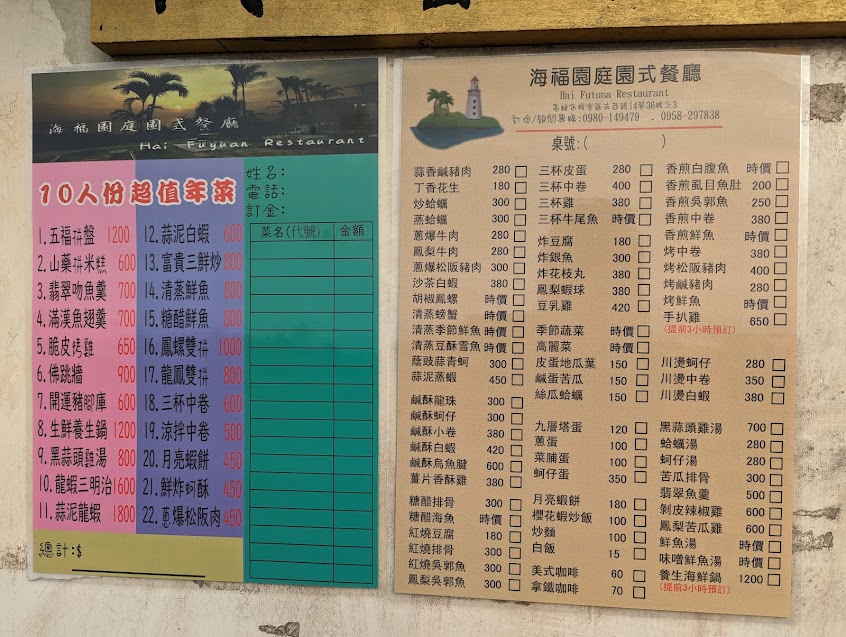 海福園庭園式餐廳
Hai Fuyuan Restaurant
10人份超值年菜
1.五福拼盤 1200
2.山藥拼米糕 600
3.翡翠吻魚羹 700
4.滿漢魚翅羹 700
5.脆皮烤雞 650
6.佛跳牆 900
7.開運豬腳庫 600
8.生鮮養生鍋 1200
9.黑蒜頭雞湯 800
10.龍蝦三明治 1600
11.蒜泥龍蝦 1800
12.蒜泥白蝦 600
13.富貴三鮮炒 800
14.清蒸鮮魚 800
15.糖醋鮮魚 800
16.鳳螺雙拼 1000
17.龍鳳雙拼 800
18.三杯中卷 600
19.涼拌中卷 500
20.月亮蝦餅 450
21.鮮炸蚵酥 450
22.蔥爆松阪肉 450
總計:$
姓名:
電話:
訂金:
菜名(代號) 金額
海福園庭園式餐廳
Hai Futuna Restaurant
0980-149479 . 0958-297838
桌號:( )
蒜香鹹豬肉 280
丁香花生 180
炒蛤蠣 300
蒸蛤蠣 300
蔥爆牛肉 280
鳳梨牛肉 280
蔥爆松阪豬肉 300
沙茶白蝦 380
胡椒鳳螺 時價
清蒸螃蟹 時價
清蒸季節鮮魚 時價
清蒸豆酥雪魚 時價
蔭豉蒜青蚵 300
蒜泥蒸蝦 450
鹹酥龍珠 300
鹹酥蚵仔 300
鹹酥小卷 380
鹹酥白蝦 420
鹹酥烏魚腱 600
薑片香酥雞 380
糖醋排骨 300
糖醋海魚 時價
紅燒豆腐 180
紅燒排骨 300
紅燒吳郭魚 300
鳳梨吳郭魚 300
三杯皮蛋 280
三杯中卷 400
三杯雞 380
三杯牛尾魚 時價
炸豆腐 180
炸銀魚 300
炸花枝丸 380
鳳梨蝦球 380
豆乳雞 420
季節蔬菜 時價
高麗菜 時價
皮蛋地瓜葉 150
鹹蛋苦瓜 150
絲瓜蛤蠣 150
九層塔蛋 120
蔥蛋 100
菜脯蛋 100
蚵仔蛋 350
月亮蝦餅 180
櫻花蝦炒飯 100
炒麵 100
白飯 15
美式咖啡 60
拿鐵咖啡 70
香煎白腹魚 時價
香煎虱目魚肚 200
香煎吳郭魚 250
香煎中卷 380
香煎鮮魚 時價
烤中卷 380
烤松阪豬肉 400
烤鹹豬肉 280
烤鮮魚 時價
手扒雞 650
(提前3小時預訂)
川燙蚵仔 280
川燙中卷 350
川燙白蝦 380
黑蒜頭雞湯 700
蛤蠣湯 280
蚵仔湯 280
苦瓜排骨 300
翡翠魚羹 500
剝皮辣椒雞 600
鳳梨苦瓜雞 600
鮮魚湯 時價
味噌鮮魚湯 時價
養生海鮮鍋 1200
(提前3小時預訂)